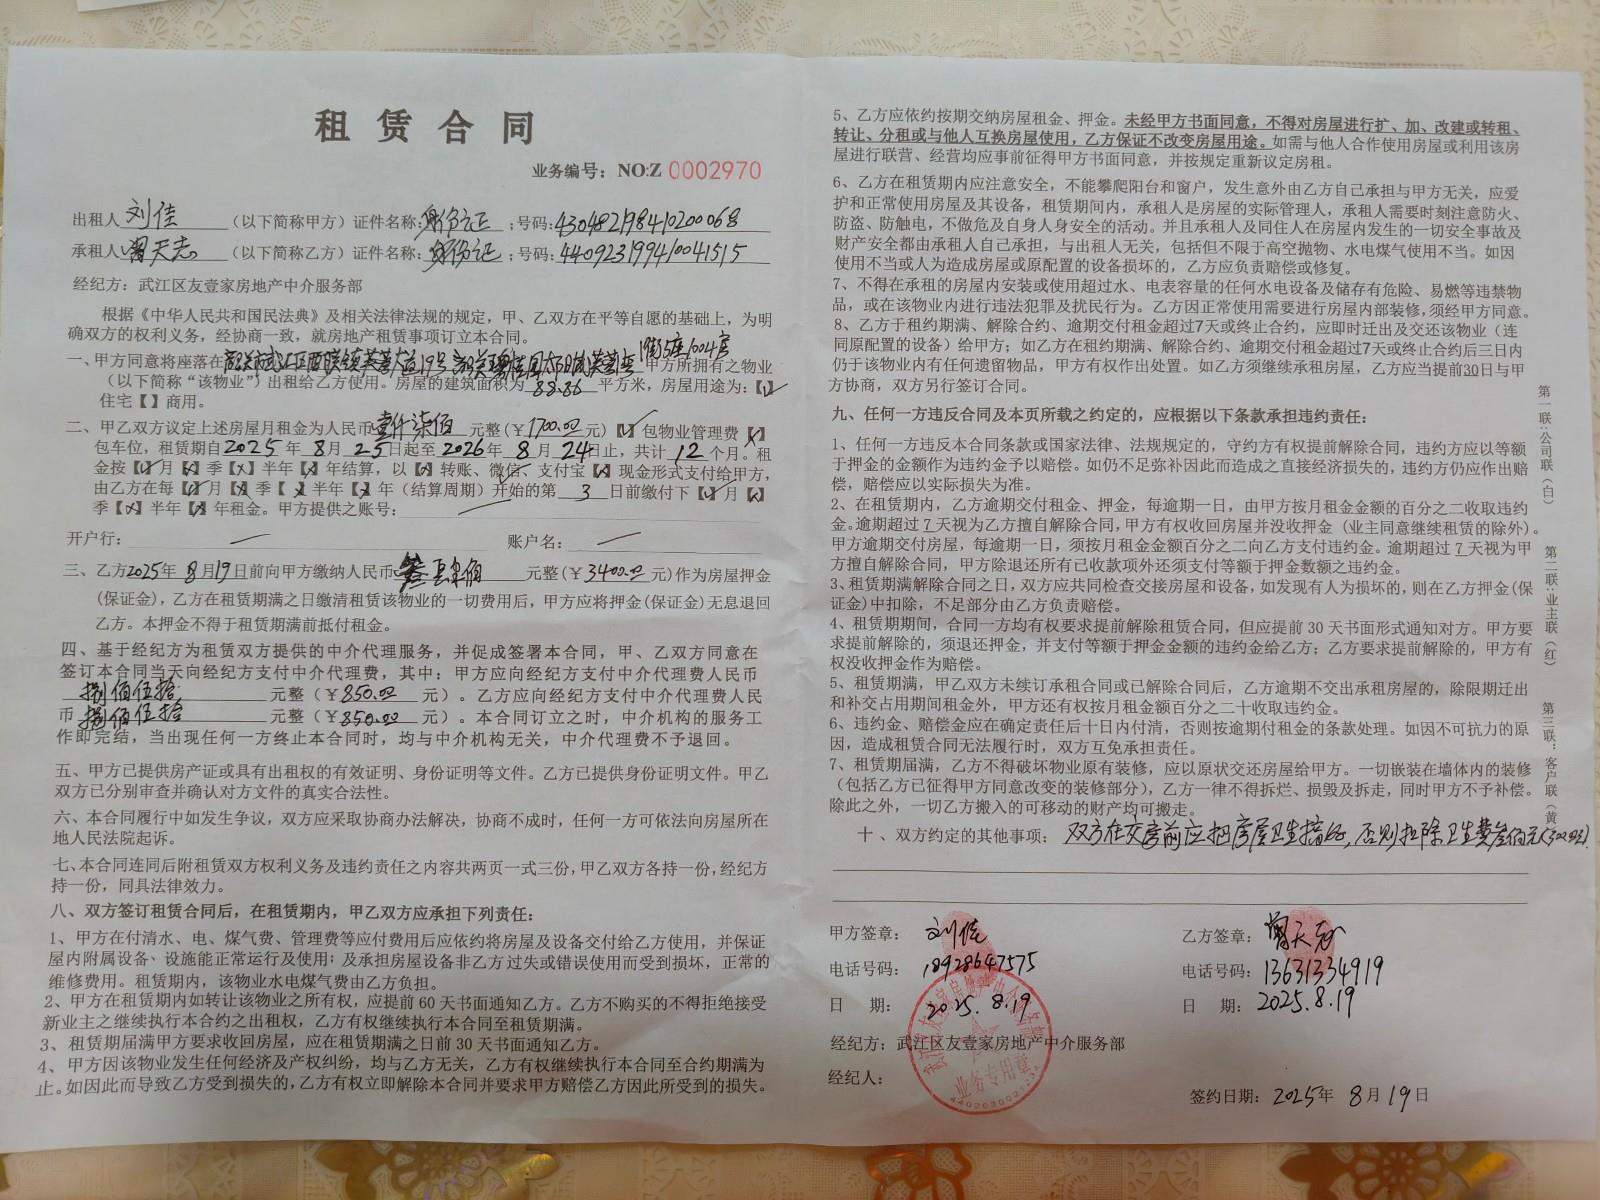 租赁合同
业务编号：NO:Z 0002970
出租人 刘佳 （以下简称甲方）证件名称：身份证；号码：430482198410200068
承租人 曾天志 （以下简称乙方）证件名称：身份证；号码：440923199410041515
经纪方：武江区友壹家房地产中介服务部
根据《中华人民共和国民法典》及相关法律法规的规定，甲、乙双方在平等自愿的基础上，为明
确双方的权利义务，经协商一致，就房地产租赁事项订立本合同。
一、甲方同意将座落在韶关市武江区西联镇芙蓉大道19号 1街5座1004房 甲方所拥有之物业
（以下简称“该物业”）出租给乙方使用。房屋的建筑面积为 88.86 平方米，房屋用途为：【√】
住宅【 】商用。
二、甲乙双方议定上述房屋月租金为人民币 壹仟柒佰 元整(￥1700.00元)【√】包物业管理费【×】
包车位，租赁期自2025年8月25日起至2026年8月24日止，共计12个月。租
金按【√】月【×】季【×】半年【×】年结算，以【√】转账、微信、支付宝【×】现金形式支付给甲方，
由乙方在每【√】月【×】季【×】半年【×】年（结算周期）开始的第 3 日前缴付下【√】月【×】
季【×】半年【×】年租金。甲方提供之账号：
开户行： 账户名：
三、乙方2025年8月19日前向甲方缴纳人民币 叁仟肆佰 元整(￥3400.00元)作为房屋押金
(保证金)，乙方在租赁期满之日缴清租赁该物业的一切费用后，甲方应将押金(保证金)无息退回
乙方。本押金不得于租赁期满前抵付租金。
四、基于经纪方为租赁双方提供的中介代理服务，并促成签署本合同，甲、乙双方同意在
签订本合同当天向经纪方支付中介代理费，其中：甲方应向经纪方支付中介代理费人民币
捌佰伍拾 元整（￥850.00 元）。乙方应向经纪方支付中介代理费人民
币 捌佰伍拾 元整（￥850.00 元）。本合同订立之时，中介机构的服务工
作即完结，当出现任何一方终止本合同时，均与中介机构无关，中介代理费不予退回。
五、甲方已提供房产证或具有出租权的有效证明、身份证明等文件。乙方已提供身份证明文件。甲乙
双方已分别审查并确认对方文件的真实合法性。
六、本合同履行中如发生争议，双方应采取协商办法解决，协商不成时，任何一方可依法向房屋所在
地人民法院起诉。
七、本合同连同后附租赁双方权利义务及违约责任之内容共两页一式三份，甲乙双方各持一份，经纪方
持一份，同具法律效力。
八、双方签订租赁合同后，在租赁期内，甲乙双方应承担下列责任：
1、甲方在付清水、电、煤气费、管理费等应付费用后应依约将房屋及设备交付给乙方使用，并保证
屋内附属设备、设施能正常运行及使用；及承担房屋设备非乙方过失或错误使用而受到损坏，正常的
维修费用。租赁期内，该物业水电煤气费由乙方负担。
2、甲方在租赁期内如转让该物业之所有权，应提前60天书面通知乙方。乙方不购买的不得拒绝接受
新业主之继续执行本合约之出租权，乙方有权继续执行本合同至租赁期满。
3、租赁期届满甲方要求收回房屋，应在租赁期满之日前30天书面通知乙方。
4、甲方因该物业发生任何经济及产权纠纷，均与乙方无关，乙方有权继续执行本合同至合约期满为
止。如因此而导致乙方受到损失的，乙方有权立即解除本合同并要求甲方赔偿乙方因此所受到的损失。
5、乙方应依约按期交纳房屋租金、押金。未经甲方书面同意，不得对房屋进行扩、加、改建或转租、
转让、分租或与他人互换房屋使用，乙方保证不改变房屋用途。如需与他人合作使用房屋或利用该房
屋进行联营、经营均应事前征得甲方书面同意，并按规定重新议定房租。
6、乙方在租赁期内应注意安全，不能攀爬阳台和窗户，发生意外由乙方自己承担与甲方无关，应爱
护和正常使用房屋及其设备，租赁期间内，承租人是房屋的实际管理人，承租人需要时刻注意防火、
防盗、防触电，不做危及自身人身安全的活动。并且承租人及同住人在房屋内发生的一切安全事故及
财产安全都由承租人自己承担，与出租人无关，包括但不限于高空抛物、水电煤气使用不当。如因
使用不当或人为造成房屋或原配置的设备损坏的，乙方应负责赔偿或修复。
7、不得在承租的房屋内安装或使用超过水、电表容量的任何水电设备及储存有危险、易燃等违禁物
品，或在该物业内进行违法犯罪及扰民行为。乙方因正常使用需要进行房屋内部装修，须经甲方同意。
8、乙方于租约期满、解除合约、逾期交付租金超过7天或终止合约，应即时迁出及交还该物业（连
同原配置的设备）给甲方；如乙方在租约期满、解除合约、逾期交付租金超过7天或终止合约后三日内
仍于该物业内有任何遗留物品，甲方有权作出处置。如乙方须继续承租房屋，乙方应当提前30日与甲
方协商，双方另行签订合同。
九、任何一方违反合同及本页所载之约定的，应根据以下条款承担违约责任：
1、任何一方违反本合同条款或国家法律、法规规定的，守约方有权提前解除合同，违约方应以等额
于押金的金额作为违约金予以赔偿。如仍不足弥补因此而造成之直接经济损失的，违约方仍应作出赔
偿，赔偿应以实际损失为准。
2、在租赁期内，乙方逾期交付租金、押金，每逾期一日，由甲方按月租金金额的百分之二收取违约
金。逾期超过7天视为乙方擅自解除合同，甲方有权收回房屋并没收押金（业主同意继续租赁的除外）。
甲方逾期交付房屋，每逾期一日，须按月租金金额百分之二向乙方支付违约金。逾期超过7天视为甲
方擅自解除合同，甲方除退还所有已收款项外还须支付等额于押金数额之违约金。
3、租赁期满解除合同之日，双方应共同检查交接房屋和设备，如发现有人为损坏的，则在乙方押金(保
证金)中扣除，不足部分由乙方负责赔偿。
4、租赁期期间，合同一方均有权要求提前解除租赁合同，但应提前30天书面形式通知对方。甲方要
求提前解除的，须退还押金，并支付等额于押金金额的违约金给乙方；乙方要求提前解除的，甲方有
权没收押金作为赔偿。
5、租赁期满，甲乙双方未续订承租合同或已解除合同后，乙方逾期不交出承租房屋的，除限期迁出
和补交占用期间租金外，甲方还有权按月租金额百分之二十收取违约金。
6、违约金、赔偿金应在确定责任后十日内付清，否则按逾期付租金的条款处理。如因不可抗力的原
因，造成租赁合同无法履行时，双方互免承担责任。
7、租赁期届满，乙方不得破坏物业原有装修，应以原状交还房屋给甲方。一切嵌装在墙体内的装修
（包括乙方已征得甲方同意改变的装修部分），乙方一律不得拆烂、损毁及拆走，同时甲方不予补偿。
除此之外，一切乙方搬入的可移动的财产均可搬走。
十、双方约定的其他事项：双方在交房前应把房屋卫生搞好，否则扣除卫生费叁佰元(300元)。
甲方签章：刘佳
乙方签章：曾天志
电话号码：18928647575
电话号码：13631334919
日 期：2025.8.19
日 期：2025.8.19
经纪方：武江区友壹家房地产中介服务部
经纪人：
签约日期：2025年8月19日
业务专用章
第一联：公司联（白）
第二联：业主联（红）
第三联：客户联（黄）